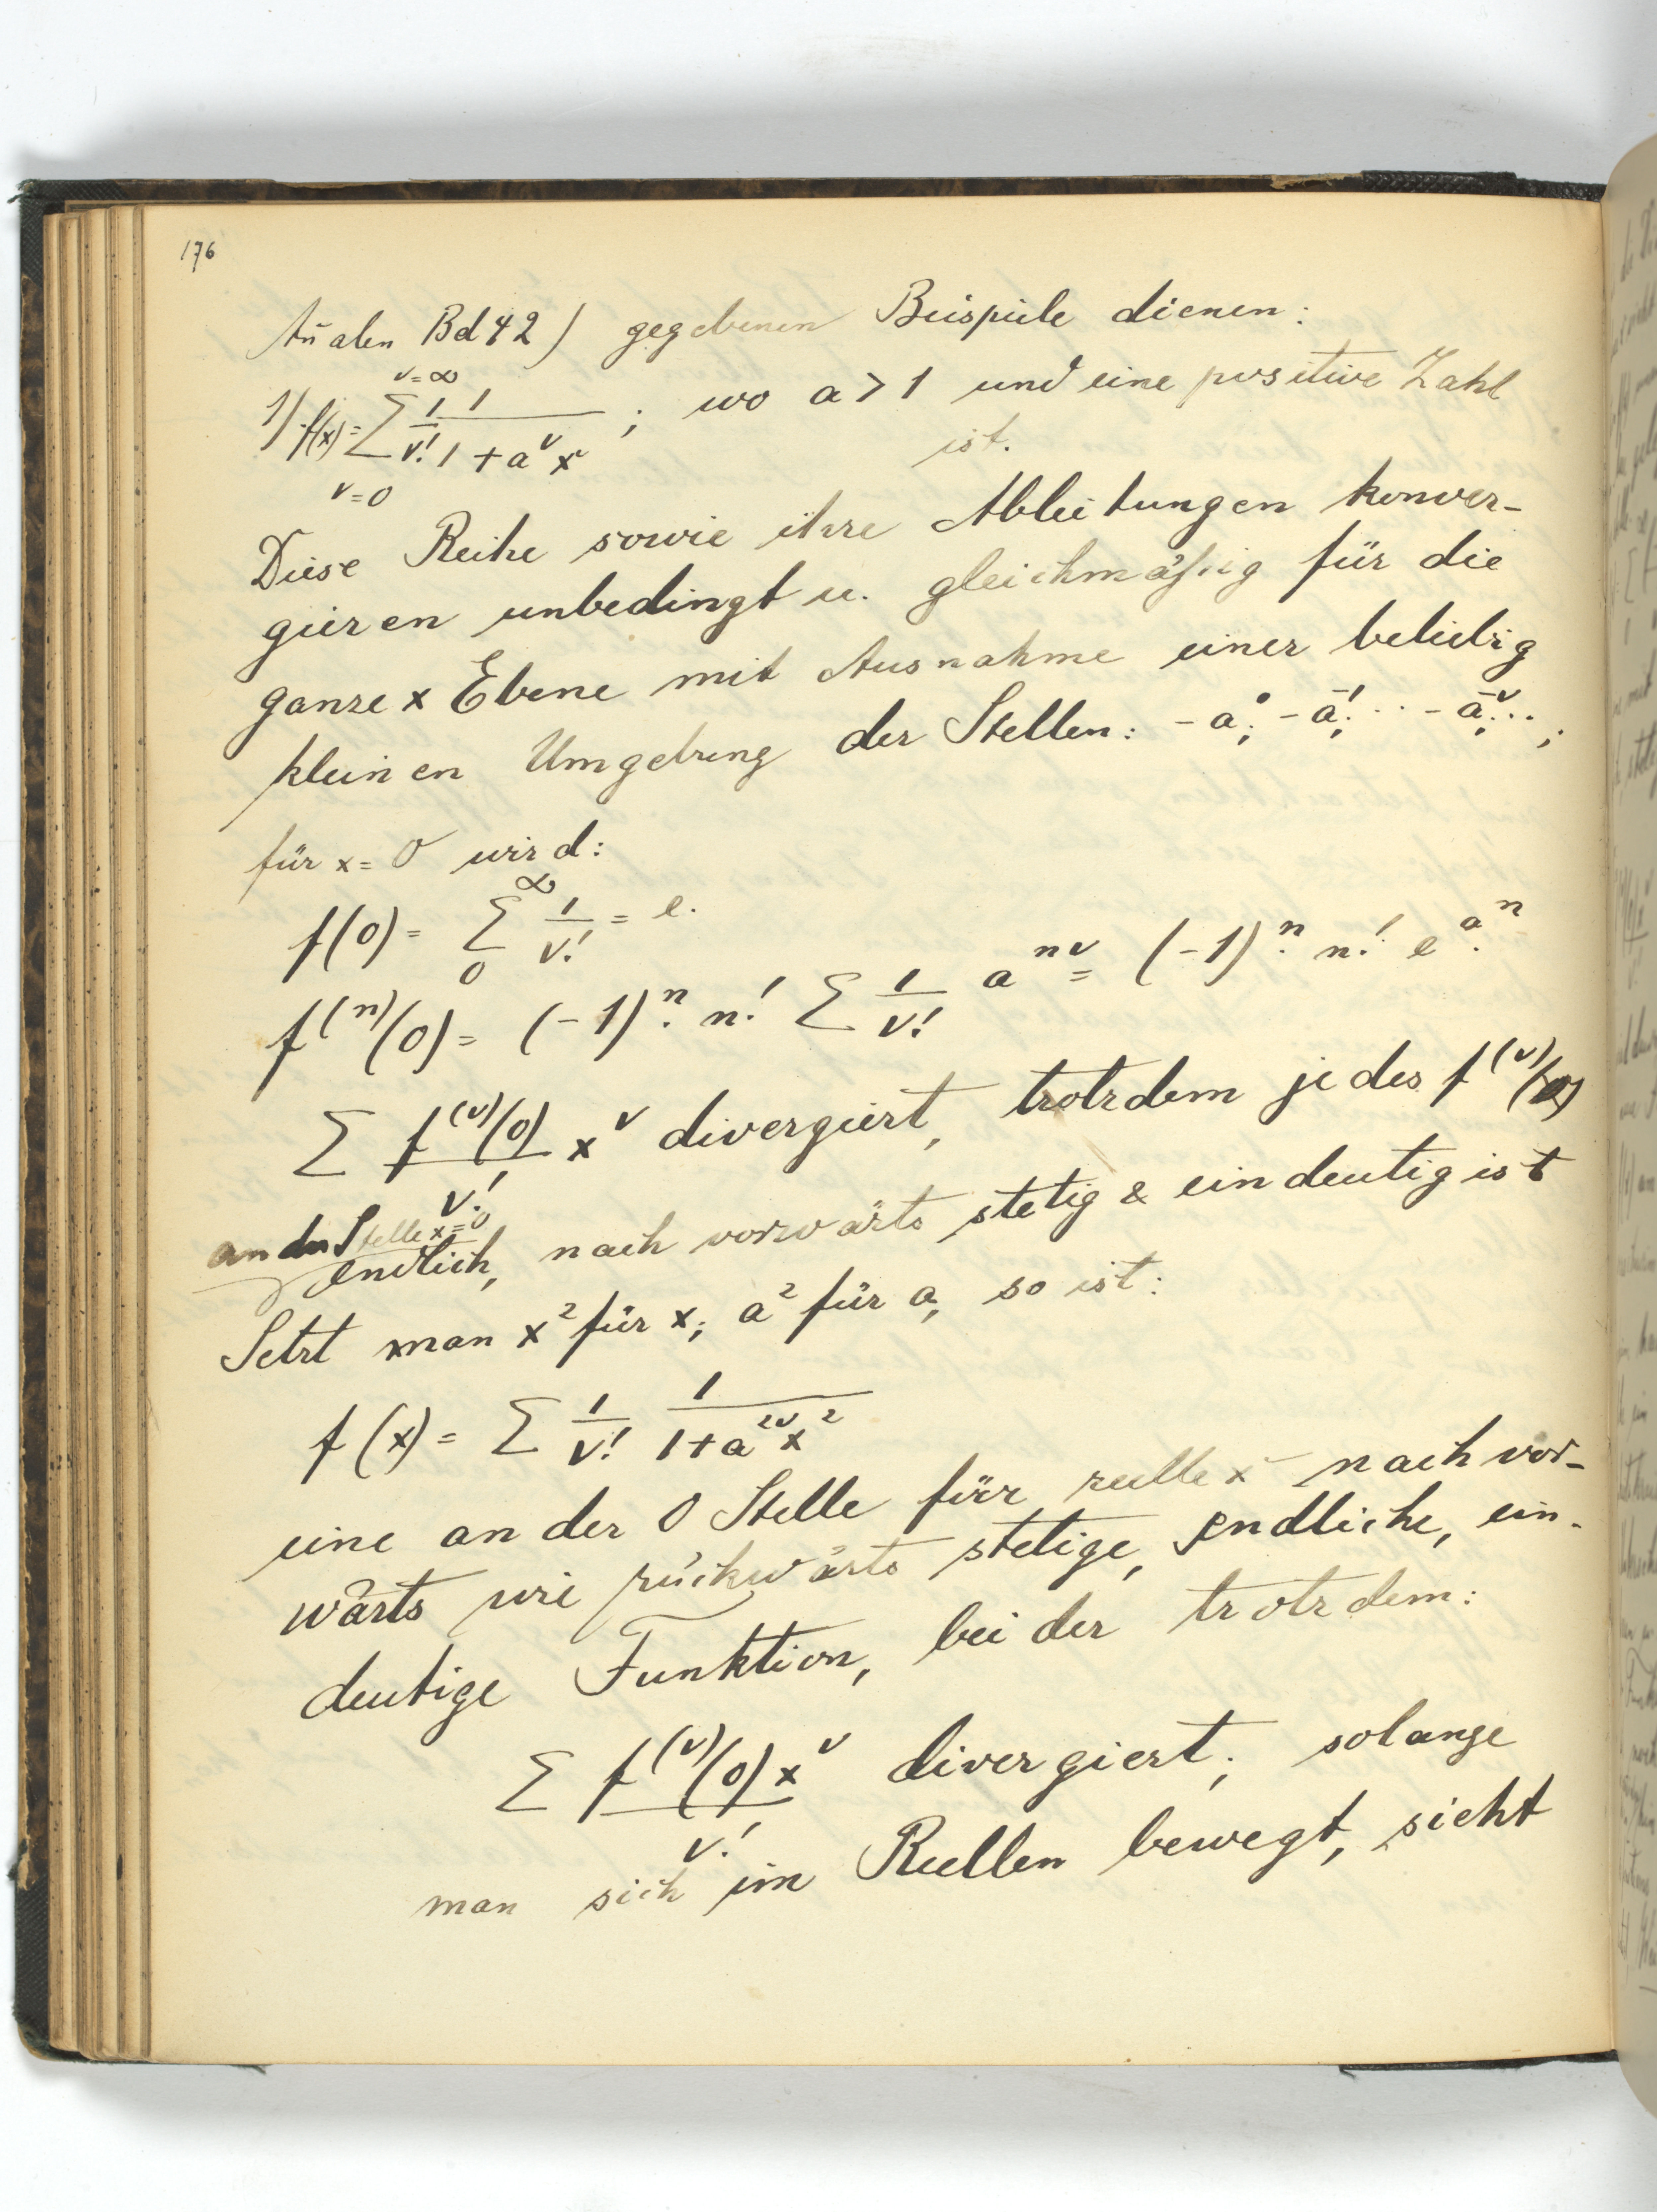 176
Añalen Bd 42) gegebenen Beispiele dienen:
1) f(x) = \sum_{ν=0}^{ν=∞} \frac{1}{ν!} \frac{1}{1+a^ν x}; wo a > 1 und eine positive Zahl
ist.
Diese Reihe sowie ihre Ableitungen konver-
gieren unbedingt u. gleichmäßig für die
ganze x Ebene mit Ausnahme einer beliebig
kleinen Umgebung der Stellen: -a^0; -a^{-1}; ·· -a^{-ν}; ...;
für x = 0 wird:
f(0) = \sum_0^∞ \frac{1}{ν!} = e.
f^{(n)}(0) = (-1)^n. n! \sum \frac{1}{ν!} a^{nν} = (-1)^n. n! e^{a^n}.
\sum \frac{f^{(ν)}(0)}{ν!} x^ν divergiert, trotzdem jedes f^{(ν)}(x)
an der Stelle x=0
endlich, nach vorwärts stetig & eindeutig ist
Setzt man x^2 für x; a^2 für a, so ist:
f(x) = \sum \frac{1}{ν!} \frac{1}{1+a^{2ν}x^2}
eine an der 0 Stelle für reelle x nach vor-
wärts wie rückwärts stetige, endliche, ein-
deutige Funktion, bei der trotzdem:
\sum \frac{f^{(ν)}(0) x^ν}{ν!} divergiert; solange
man sich im Reellen bewegt, sieht